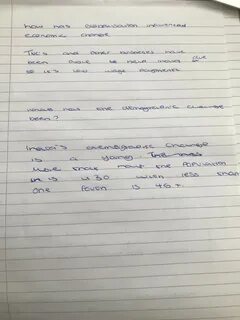 How has Globalisation influenced
economic change
TNC's and other businesses have
been able to have moved due
to it's low wage payments
What has the demographic change
been?
India's demographic change
is a young
more than half the population
is u30 with less than
one is 46+